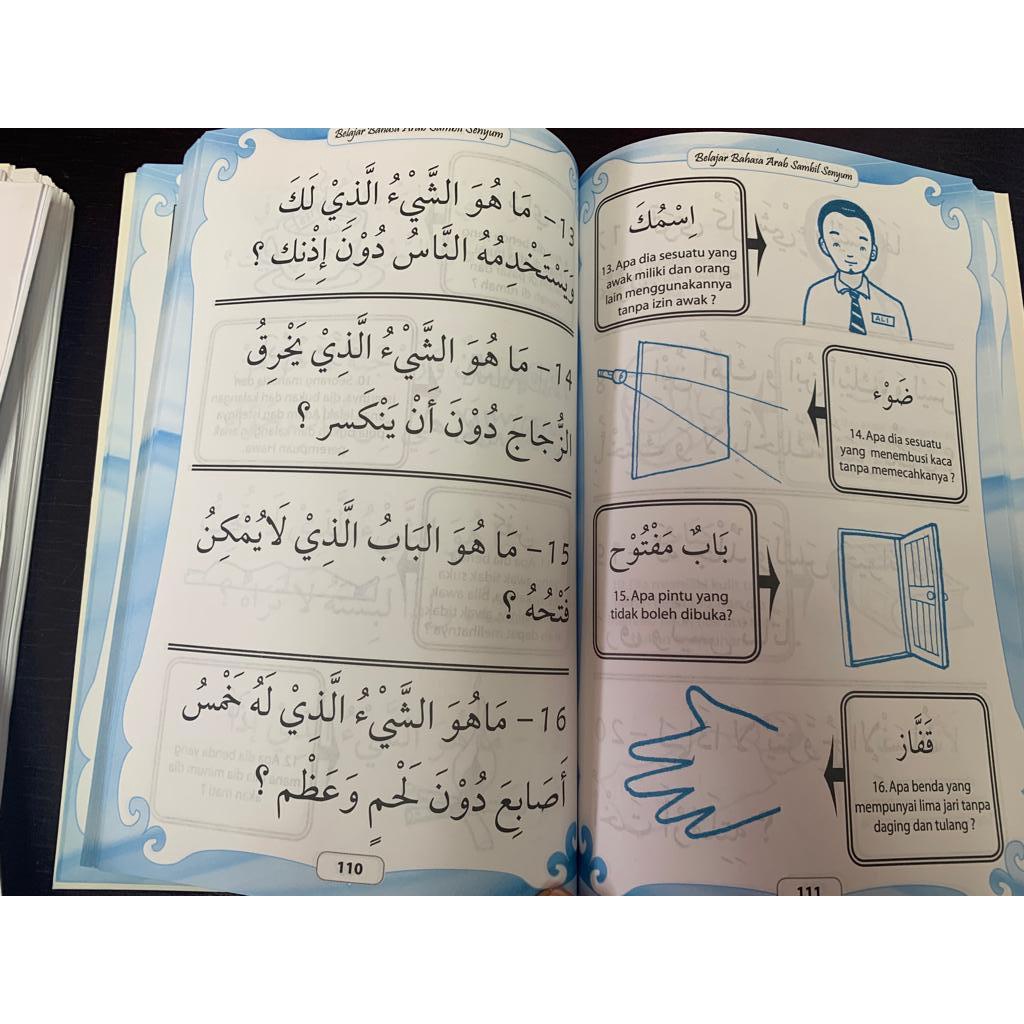 Belajar Bahasa Arab Sambil Senyum
13 – مَا هُوَ الشَّيْءُ الَّذِيْ لَكَ
وَيَسْتَخْدِمُهُ النَّاسُ دُوْنَ إِذْنِك ؟
14 – مَا هُوَ الشَّيْءُ الَّذِيْ يَخْرِقُ
الزُّجَاجَ دُوْنَ أَنْ يَنْكَسِر ؟
15 – مَا هُوَ البَابُ الَّذِيْ لَايُمْكِنُ
فَتْحُهُ ؟
16 – مَاهُوَ الشَّيْءُ الَّذِيْ لَهُ خَمْسُ
أَصَابِعَ دُوْنَ لَحْمٍ وَعَظْم ؟
110
Belajar Bahasa Arab Sambil Senyum
اِسْمُكَ
13. Apa dia sesuatu yang
awak miliki dan orang
lain menggunakannya
tanpa izin awak ?
ALI
ضَوْء
14. Apa dia sesuatu
yang menembusi kaca
tanpa memecahkanya ?
بَابٌ مَفْتُوْح
15. Apa pintu yang
tidak boleh dibuka?
قَفَّاز
16. Apa benda yang
mempunyai lima jari tanpa
daging dan tulang ?
111